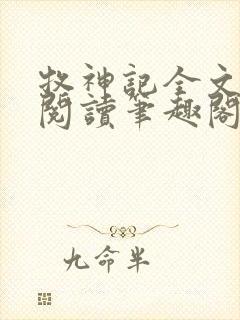 牧神記全文
閱讀筆趣閣
九命半